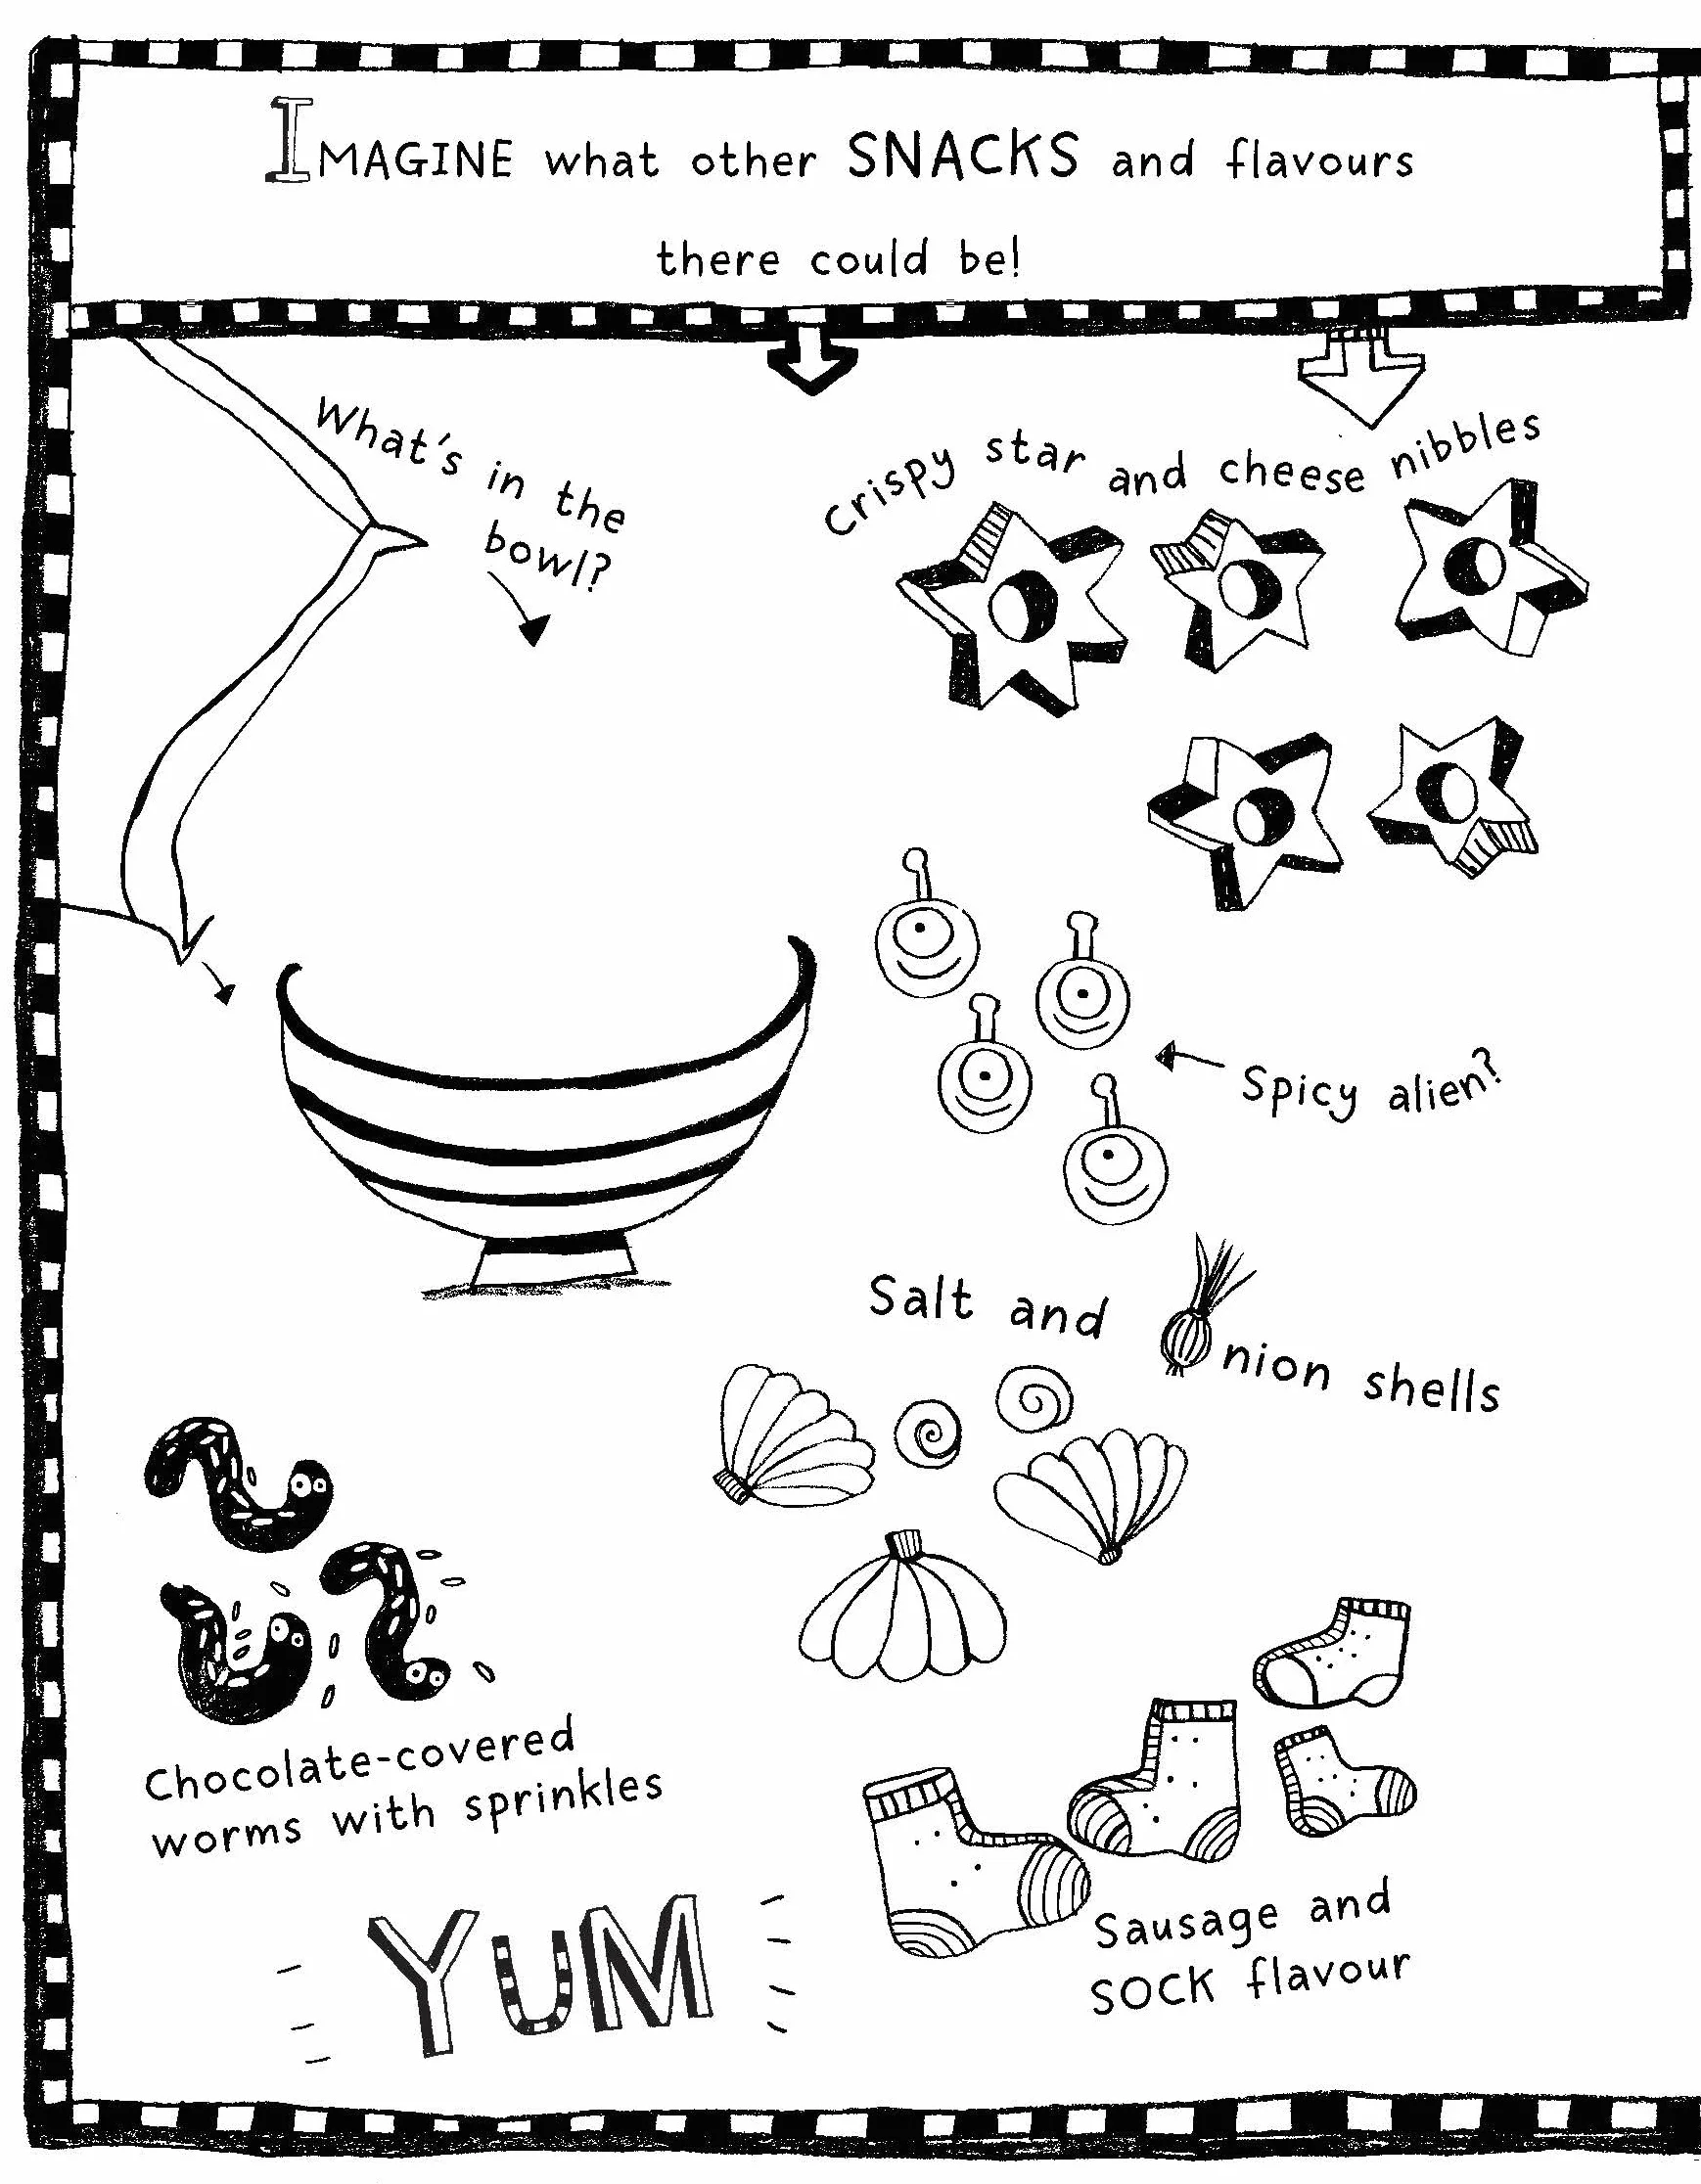 IMAGINE what other SNACKS and flavours
there could be!
What's in the
bowl?
Crispy star and cheese nibbles
Spicy alien?
Salt and onion shells
Chocolate-covered
worms with sprinkles
Sausage and
SOCK flavour
YUM